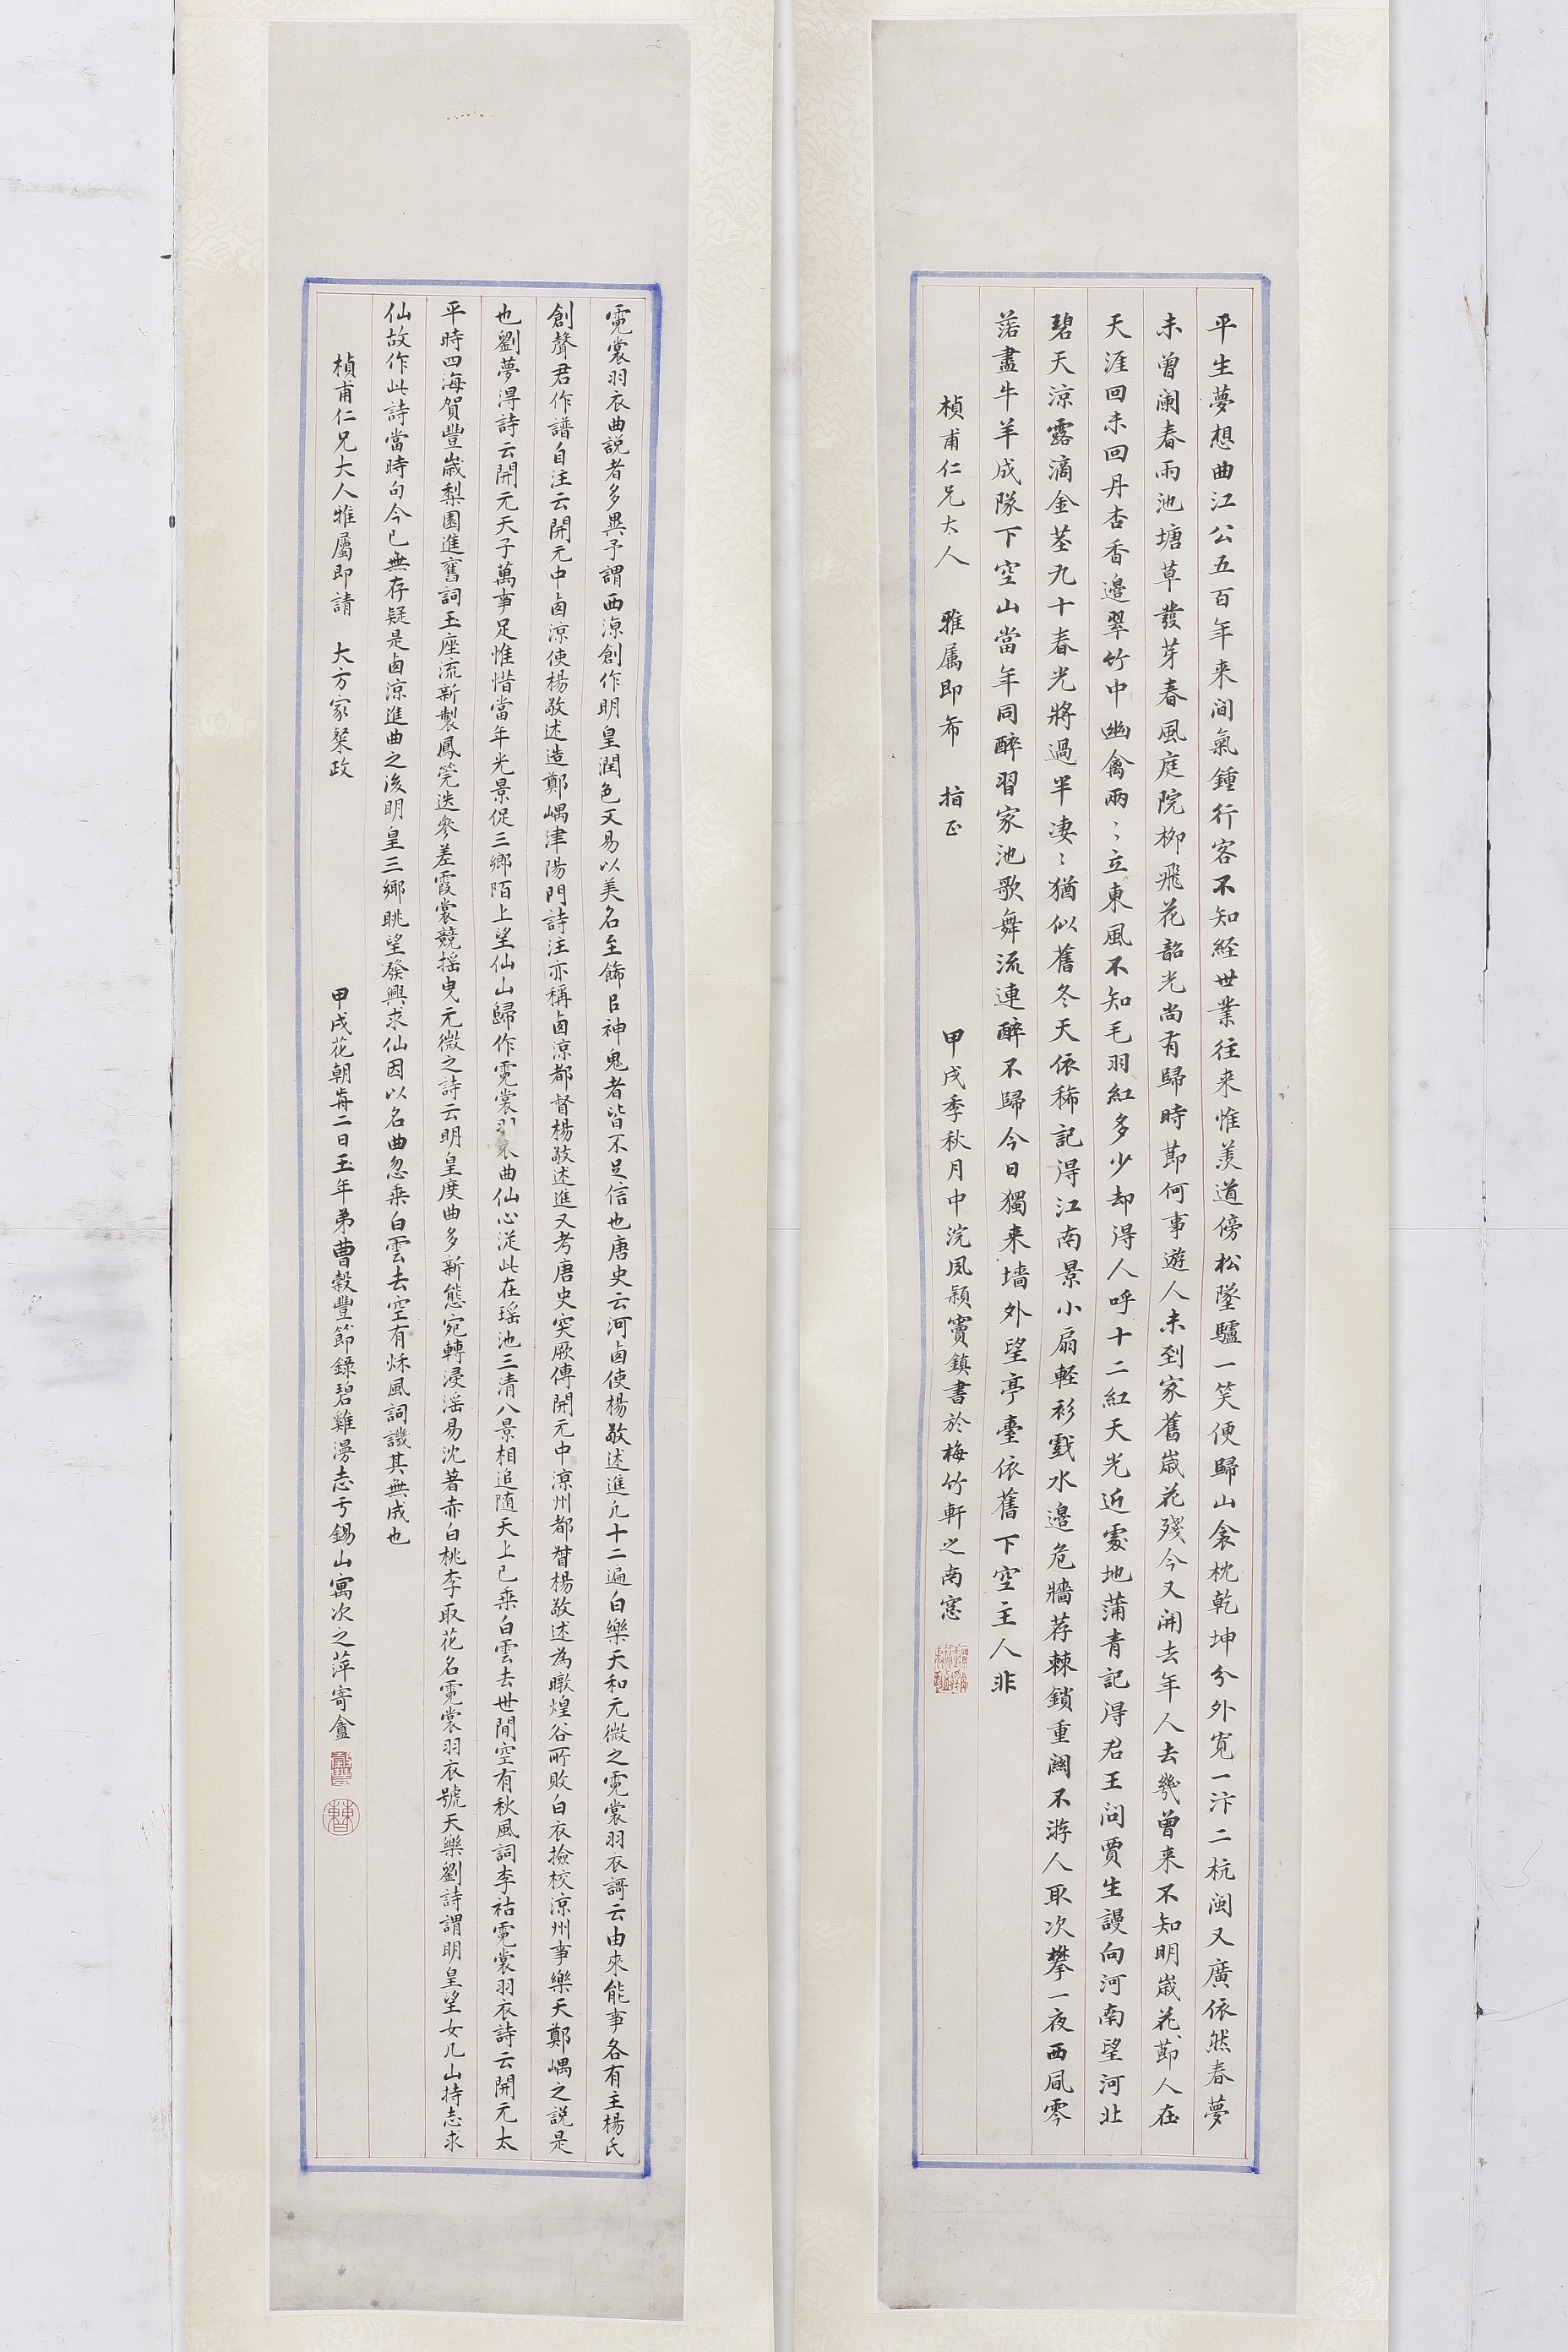 平生夢想曲江公五百年来间氣鍾行客不知経世業往来惟羡道傍松墜驢一笑便歸山衾枕乾坤分外寛一汴二杭闽又廣依然春夢
未曾闌春雨池塘草發芽春風庭院栁飛花韶光尚有歸時莭何事遊人未到家舊嵗花殘今又開去年人去幾曾来不知明嵗花莭人在
天涯回未回丹杏香邉翠竹中幽禽兩〻立東風不知毛羽紅多少却得人呼十二紅天光近處地蒲青記得君王问賈生謾向河南望河北
碧天涼露滴金莖九十春光將過半凄〻猶似舊冬天依稀記得江南景小扇軽衫戯水邉危牆荐棘鎖重闗不游人取次攀一夜西風零
落盡牛羊成隊下空山當年同醉習家池歌舞流連醉不歸今日獨来墙外望亭臺依舊下空主人非
楨甫仁兄大人 雅属即希 指正 甲戌季秋月中浣夙穎竇鎮書於梅竹軒之南窓
霓裳羽衣曲説者多異予謂西涼創作明皇潤色又易以美名至飾㠯神鬼者皆不足信也唐史云河鹵使楊敬述進凢十二遍白樂天和元微之霓裳羽衣謌云由來能事各有主楊氏
創聲君作譜自注云開元中鹵涼使楊敬述造鄭嵎津陽門詩注亦稱鹵涼都督楊敬述進又考唐史突厥傳開元中涼州都督楊敬述為暾煌谷所敗白衣撿校涼州事樂天鄭嵎之説是
也劉夢得詩云開元天子萬事足惟惜當年光景促三鄉陌上望仙山歸作霓裳羽衣曲仙心從此在瑶池三清八景相追随天上已乗白雲去世閒空有秋風詞李祜霓裳羽衣詩云開元太
平時四海賀豐嵗梨園進舊詞玉座流新製鳳筦迭參差霞裳競摇曳元微之詩云明皇度曲多新態宛轉浸淫易沈著赤白桃李取花名霓裳羽衣號天樂劉詩謂明皇望女几山持志求
仙故作此詩當時句今已無存疑是鹵涼進曲之後明皇三鄉眺望發興求仙因以名曲忽乗白雲去空有秌風詞譏其無成也
楨甫仁兄大人雅屬即請 大方家粲政 甲戌花朝歬二日玉年弟曹榖豐節錄碧雞漫志于錫山寓次之萍寄盦